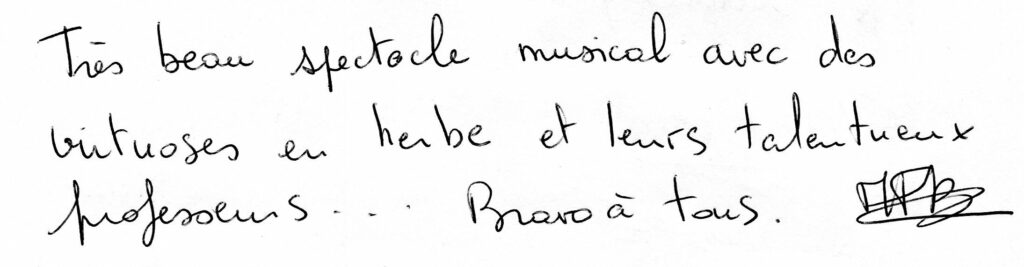 Très beau spectacle musical avec des
virtuoses en herbe et leurs talentueux
professeurs.... Bravo à tous.